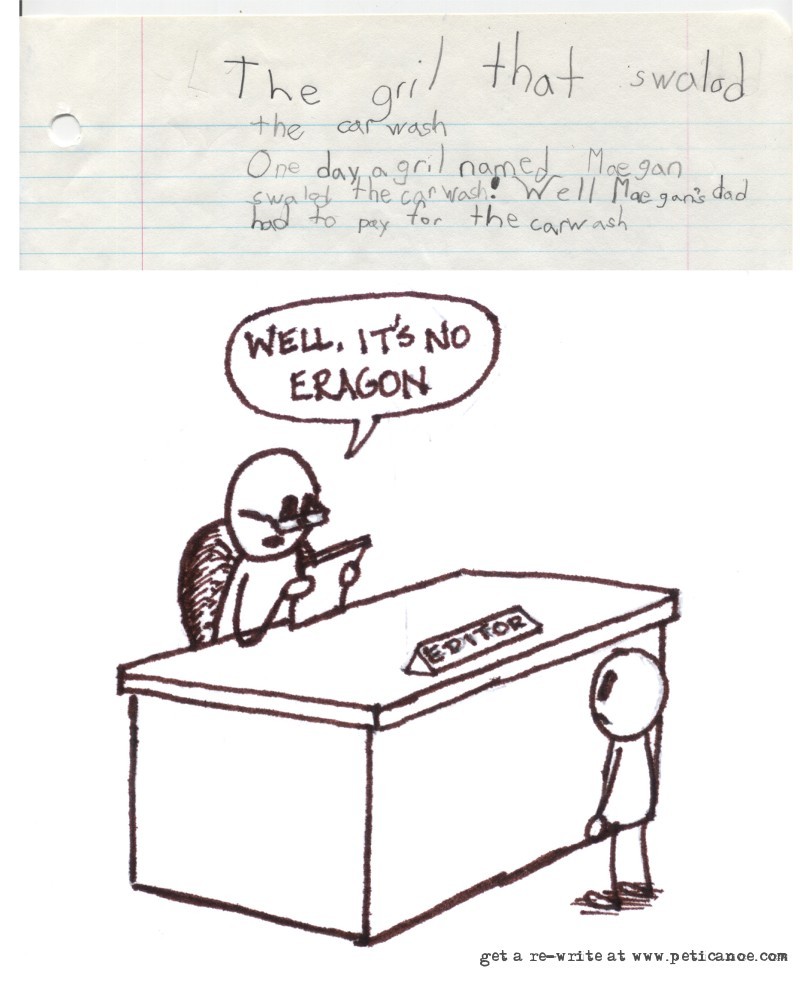 The gril that swalod
the car wash
One day a gril named Maegan
swalod the car wash! Well Maegan's dad
had to pay for the carwash
WELL, IT'S NO
ERAGON
EDITOR
get a re-write at www.peticanoe.com